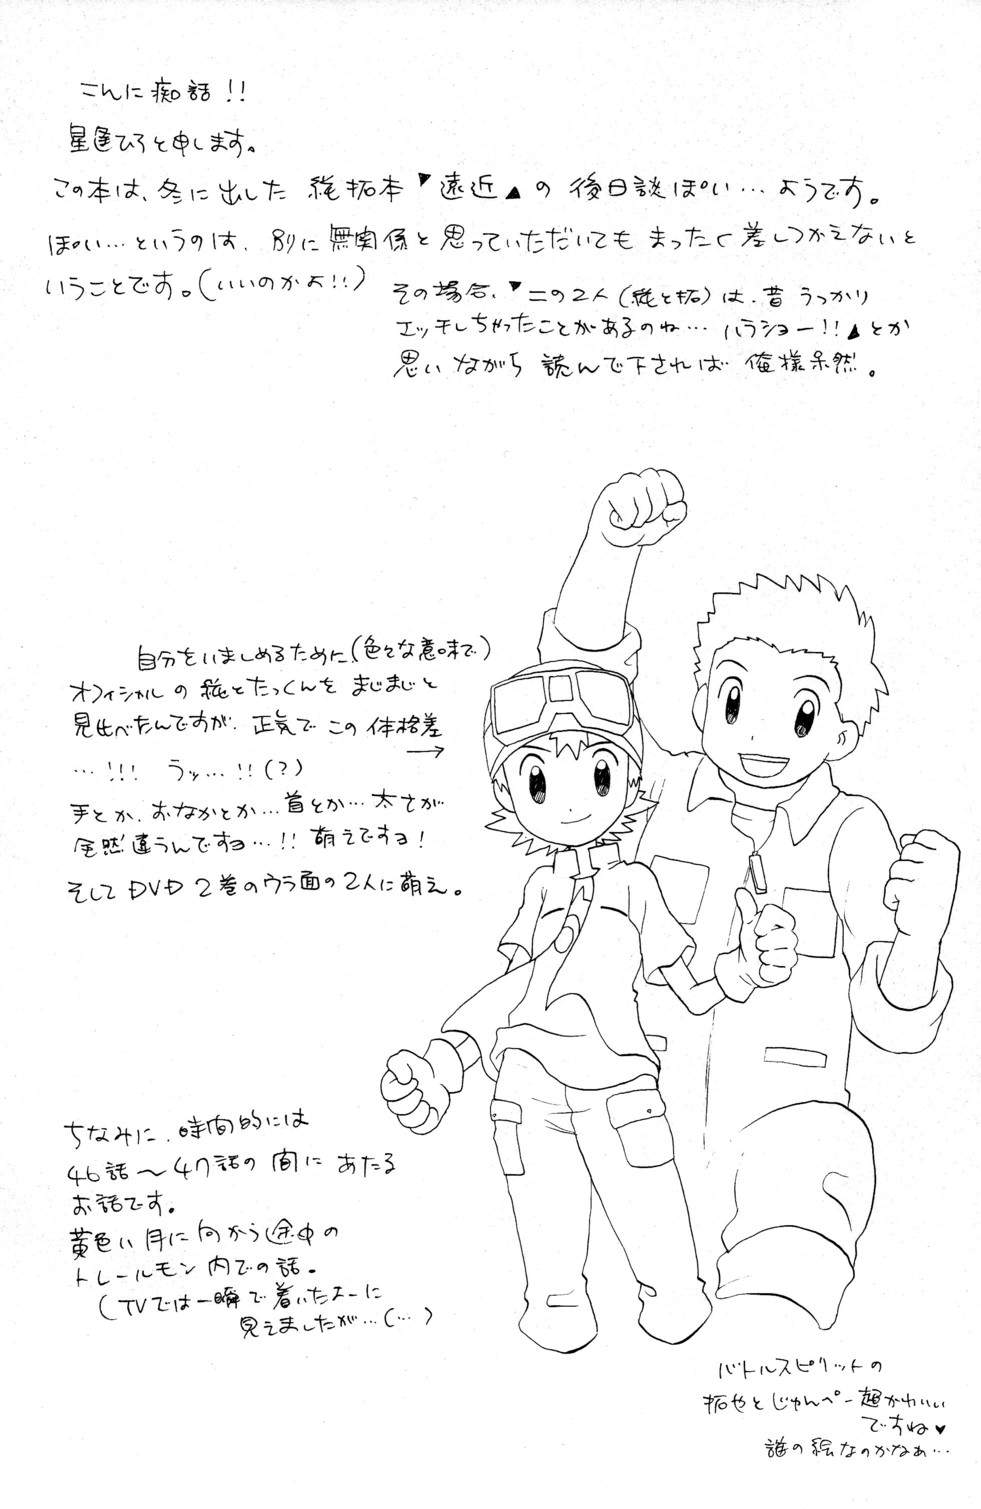 こんに痴話!!
星逢ひろと申します。
この本は、冬に出した 純拓本▼遠近▲の 後日談ぽい…ようです。
ぽい…というのは、別に無関係と思っていただいてもまったく差しつかえないと
いうことです。(いいのかよ!!)
その場合、▼この2人(純と拓)は、昔うっかり
エッチしちゃったことがあるのね…ハラショー!!▲とか
思いながら読んで下されば俺様呆然。
自分をいましめるために(色々な意味で)
オフィシャルの純とたっくんをまじまじと
見比べたんですが、正気でこの体格差
→
…!!! うッ…!!(?)
手とか、おなかとか…首とか…太さが
全然違うんですヨ…!! 萌えですヨ!
そしてDVD 2巻のウラ面の2人に萌え。
ちなみに、時間的には
46話〜47話の間にあたる
お話です。
黄色い月に向かう途中の
トレールモン内での話。
(TVでは一瞬で着いたよーに
見えましたが…(…)
バトルスピリットの
拓也とじゅんぺー超かわいい
ですね♥
誰の絵なのかなぁ…